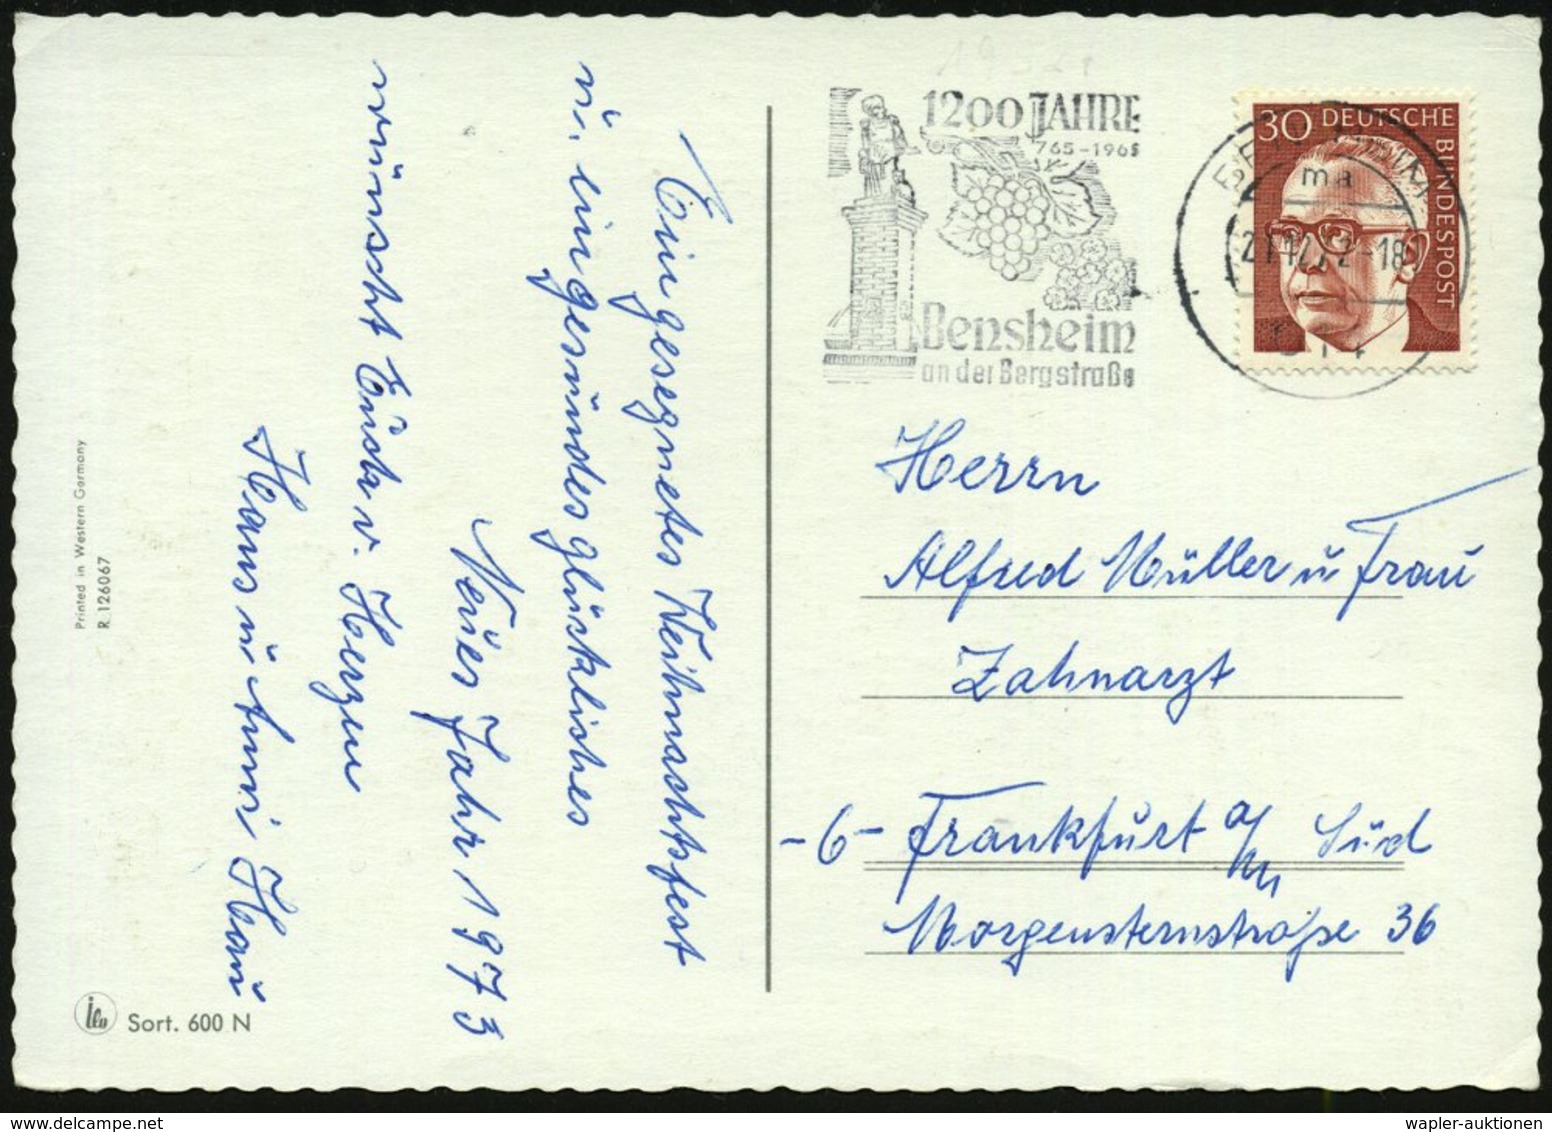 Ein gesegnetes Weihnachtsfest
u. ein gesundes glückliches
Neues Jahr 1973
wünscht Euch v. Herzen
Hans u. Anni Hau
Printed in Western Germany
R 126067
ilu
Sort. 600 N
1200 JAHRE
765-1965
Bensheim
an der Bergstraße
30 DEUTSCHE BUNDESPOST
ma
614
Herrn
Alfred Müller u Frau
Zahnarzt
-6- Frankfurt a/M Süd
Morgensternstraße 36
wapler-auktionen